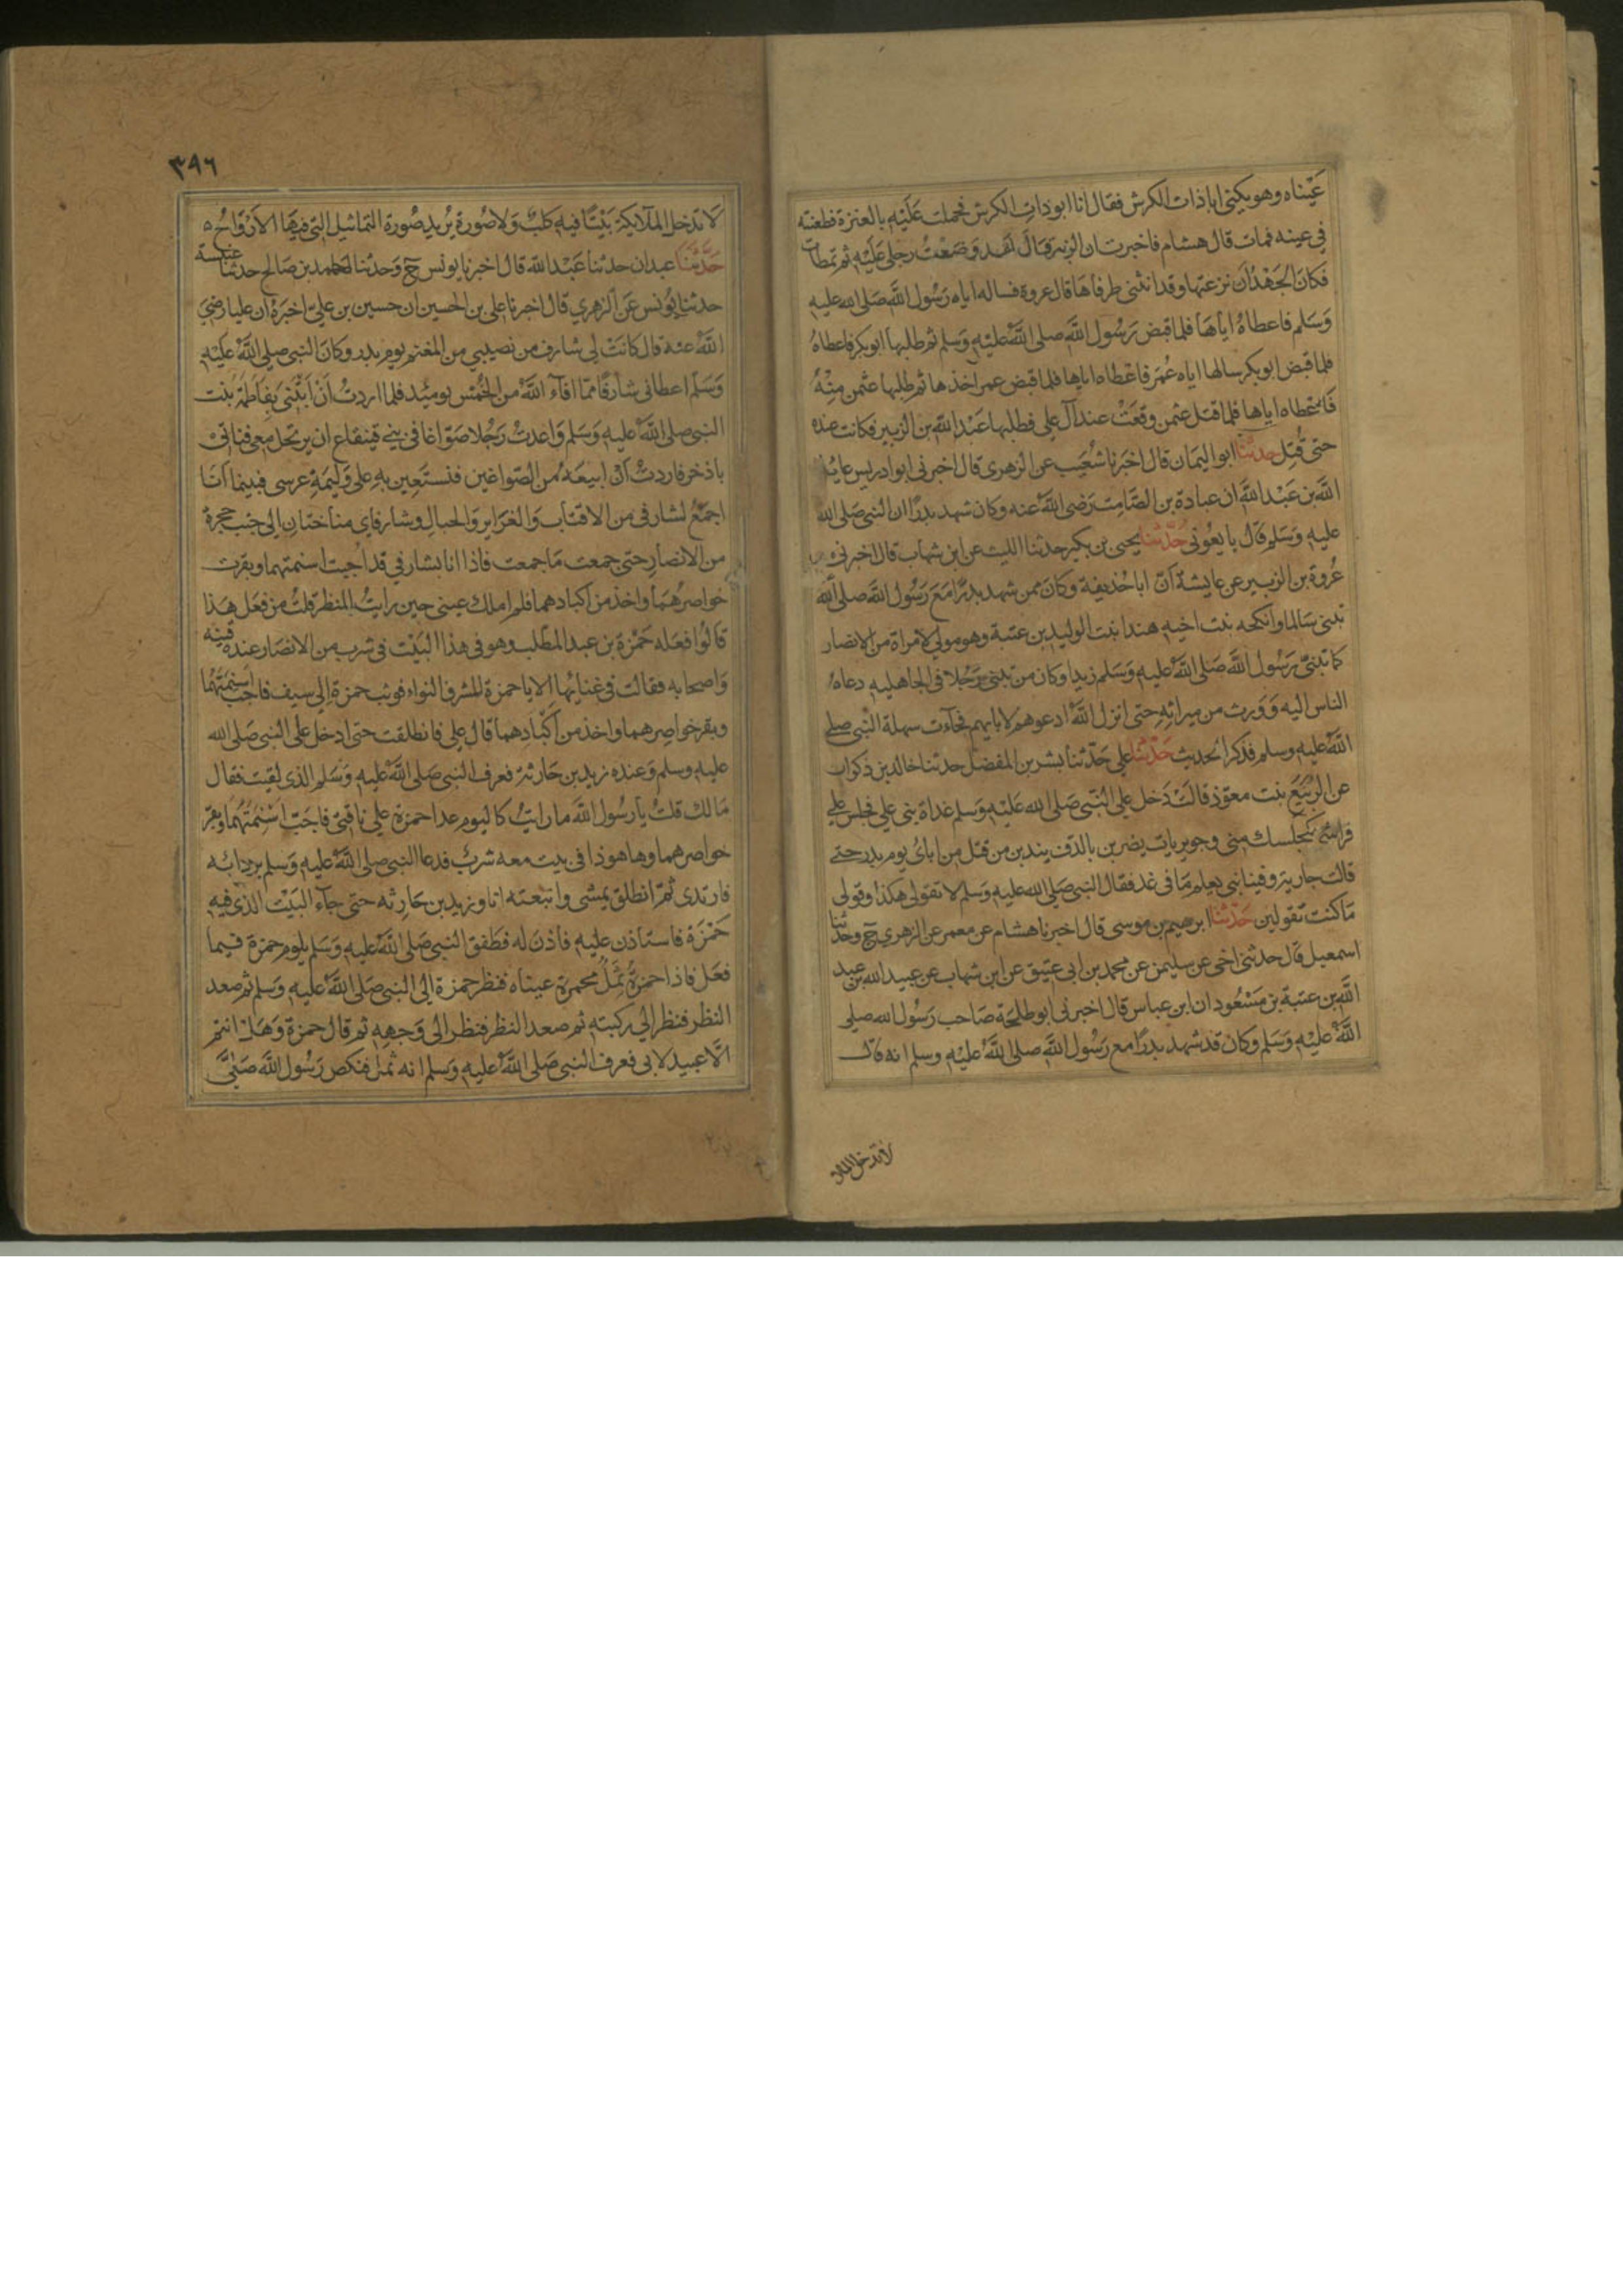 عَيْناه وهو يكنى ابا ذات الكرش فقال انا ابو ذات الكرش فحملت عَلَيْهِ بالعنزة فطعنته
في عينه فمات قال هشام فاخبرت ان الزبير قال لقد وَضعْتُ رجلى عَلَيْهِ ثم تمطات
فكانَ الجَهْدُ اَن نزعتها وقد انثنى طرفاها قال عروة فساله اياه رَسُول اللَّه صَلى الله عليهِ
وَسَلم فاعطاهُ اياهَا فلما قبض رَسُول اللَّه صلى اللَّه عليْهِ وَسَلم ثم طلبها ابو بكر فاعطاهُ
فلما قبض ابو بكر سالها اياه عُمَر فاعْطاه اياها فلما قبض عمر اخذها ثم طلبها عثمن مِنْهُ
فَاعْطاه اياها فلما قتل عثمن وقعَتْ عند آل على فطلبها عَبْد اللَّه بن الزبير فكانت عنده
حتى قُتِل حدثنا ابو اليمان قال اخبَرنا شعَيب عن الزهرى قال اخبرنى ابو ادريس عايذ
اللَّه بن عَبْد اللَّه ان عبادة بن الصَّامِت رَضى اللَّه عنه وكان شهد بدرًا ان النبي صَلى الله
عليهِ وَسَلم قال بايعُونى حَدَّثنا يحيى بن بكير حدثنا الليث عن ابن شهاب قال اخبرنى
عُروة بن الزبير عن عايشة اَنَّ ابا حُذيفة وكانَ ممن شهد بدرًا مَعَ رَسُول اللَّه صلى الله
تبنى سَالما وانكحه بنت اخيهِ هندا بنت الوليد بن عتبة وهو مولى لامراة من الانصار
كما تبنىّ رَسُول اللَّه صَلى اللَّه عليْهِ وَسَلم زيدا وكان من تبنى رَجُلا فى الجاهليه دعاهُ
الناس اليه وَوَرث من ميراثهِ حتى انزل اللَّه ادعوهم لاٰبايهم فجآءت سهلة النَّبي صلى
اللَّه عليهِ وسلم فذكر الحديث حَدَّثنا على حَدّثنا بشر بن المفضل حدثنا خالد بن ذكوان
عن الرُّبَيّع بنت معوّذ قالتْ دَخل على النَّبّي صَلى الله عَليْهِ وَسلم غداة بنى على فجلس على
فراشى كمجلسك منى وجويريات يضربن بالدف يندبن من قتل من اباىُ يوم بدر حتى
قالت جارية وفينا نبى يعلم مَا فى غد فقال النبي صَلى الله عليهِ وَسلم لا تقولى هكذا وقولى
مَا كنت تقولين حَدَّثنا ابرهيم بن موسى قال اخبرنا هشام عن معمر عن الزهرى ح وحدثنا
اسمعيل قال حدثنى اخى عن سليمن عن محمد بن ابى عتيق عن ابن شهاب عن عبيد الله بن عبد
اللَّه بن عتبة بن مَسْعُود ان ابن عباس قال اخبرنى ابو طلحَة صَاحب رَسُول الله صلى
اللَّه عليْهِ وَسَلم وكان قد شهد بدرًا مع رَسُول اللَّه صلى اللَّه عليْهِ وسلم انه قال
لا تدخل الملا
٣٩٦
لَا تدخل الملآيكة بَيْتًا فيهِ كلبٌ وَلا صُورة يُريد صُورة التماثيل التى فيهَا الاَرْوَاحُ ٥
حَدَّثنَا عبدان حدثنا عَبْد اللَّه قال اخبرنا يونس ح وَحدثنا احمد بن صَالح حدثنا عنبسة
حدثنا يُونس عَن الزهري قال اخبرنا على بن الحسين ان حسين بن عليّ اخبَرهُ ان عليا رضيَ
اللَّه عنه قال كانَتْ لى شارف من نصيبي من المغنم يوم بدر وكانَ النبي صلى اللَّه عليْهِ
وَسَلم اعطانى شارفًا ممّا افآء اللَّه من الخُمْس يومئد فلما اردتُ اَنْ اَبْتَنى بفَاطَمَة بنت
النبي صلى اللَّه عليهِ وَسَلم وَاعدتُ رَجُلا صَوّاغا فى بني قينقاع ان يرتحل معى فناتى
باذخر فاردتُ اَن ابيعَهُ من الصّواغين فنستَعِين بهِ على وَليمَةِ عرسى فبينما اَنَا
اجمَعُ لشارفى من الاقتاب وَالغرَاير وَالحبالِ وشارفاى مناختان الى جنب حجرة
من الانصارِ حتى جمعت مَا جمعت فاذا انا بشارفي قد اُجبت اسنمتهما وبقرت
خواصرهُمَا واخذ من اكبادهما فلم املك عينى حين رايتُ المنظر قلتُ من فعَل هَذا
قالُوا فعَله حَمْزة بن عبد المطّلب وهو فى هذا البَيْت فى شرب من الانصَار عنده قينه
وَاصحابه فقالت فى غنايُها الا يا حمزة للشرف النواء فوثب حمزة الى سيف فاجَبَّ اَسْنِمَتَهُمَا
وبقر خواصِرهما واخذ من اكبادهما قال على فانطلقت حتى ادخل على النبي صَلى الله
عليهِ وسلم وَعنده زيد بن حَارثة فعرف النبي صَلى اللَّه عليهِ وَسَلم الذى لقيت فقال
مَا لك قلتُ يا رسُول اللَّه ما رايتُ كاليوم عدا حمزة على ناقتى فاجَبّ اَسْنِمَتَهُمَا وبقر
خواصرهما وها هو ذا فى بيت معه شربٌ فدعا النبي صلى اللَّه عليهِ وَسلم بردائه
فارتدى ثمّ انطلق يمشى واتبعته انا وزيد بن حَارثه حتى جآء البَيْت الذى فيهِ
حَمْزَة فاستاذن عليهِ فاذنَ له فطَفق النبي صَلى اللَّه عليهِ وَسَلم يلوم حمزة فيما
فعَل فاذا حمزةُ ثَمِلٌ محمرة عيناه فنظر حمزة الى النبي صَلى اللَّه عليهِ وَسلم ثم صعد
النظر فنظر الى ركبتهِ ثم صعد النظر فنظر الى وَجههِ ثم قال حمزة وَهَلْ انتم
الّا عبيد لابى فعرف النبي صَلى اللَّه عليهِ وَسَلم انه ثمل فنكص رَسُول اللَّه صَلَّى